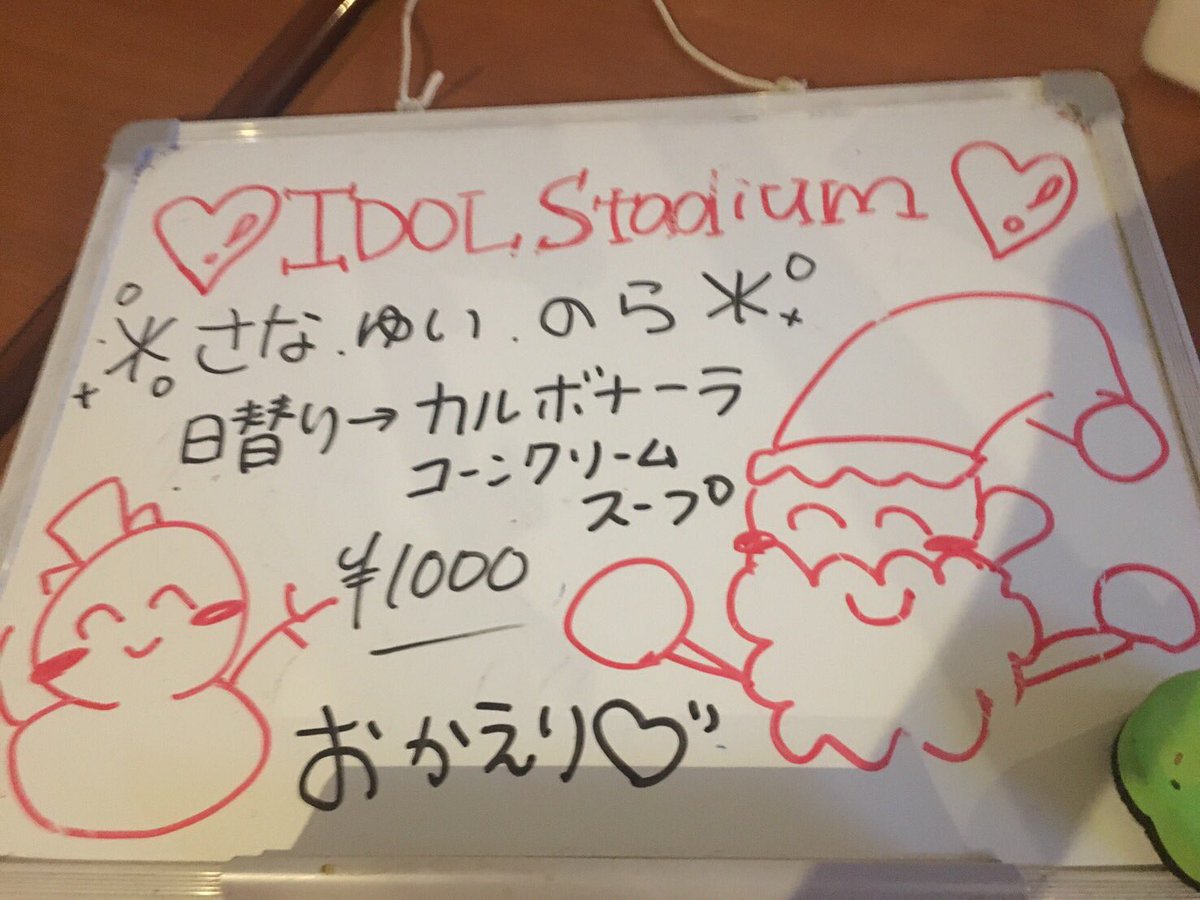 ♡IDOL Stadium♡
さな.ゆい.のら
日替り→カルボナーラ
コーンクリーム
スープ
¥1000
おかえり♡